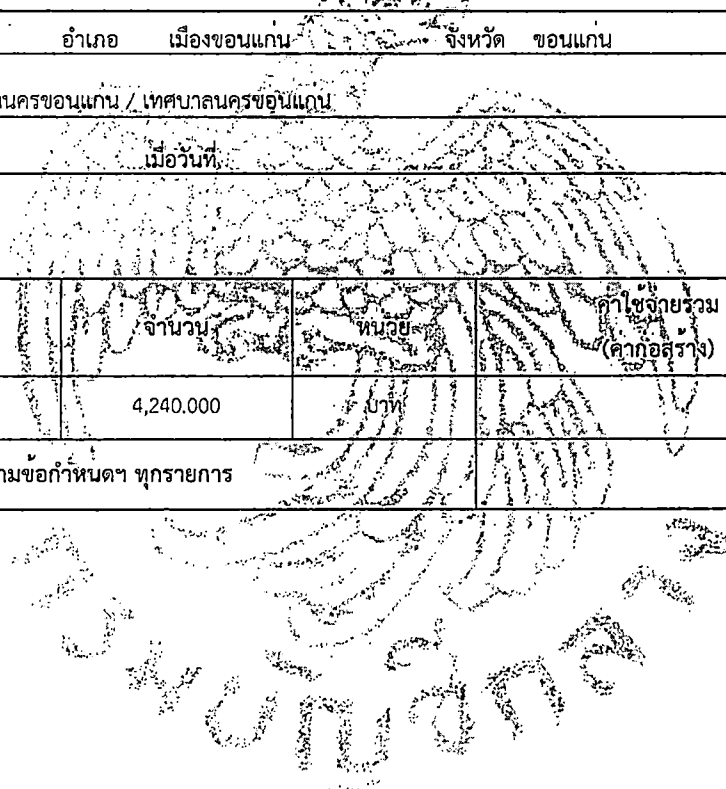 อำเภอ เมืองขอนแก่น จังหวัด ขอนแก่น
นครขอนแก่น / เทศบาลนครขอนแก่น
เมื่อวันที่
จำนวน หน่วย ค่าใช้จ่ายรวม
(ค่าก่อสร้าง)
4,240.000 บาท
ามข้อกำหนดฯ ทุกรายการ